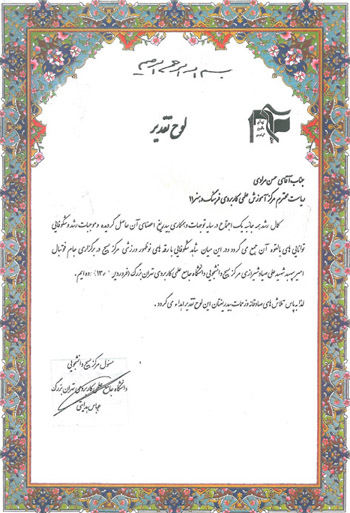 بسم الله الرحمن الرحیم
لوح تقدیر
جناب آقای حسن مرادی
ریاست محترم مرکز آموزش علمی کاربردی فرهنگ و هنر ۱۱
کمال رشد همه جانبه یک اجتماع در سایه توجهات و همکاری بیدریغ اعضای آن حاصل گردیده و موجبات رشد و شکوفایی
توانایی های بالقوه آن جمع می گردد و در این میان شاهد شکوفایی بارقه های نوظهور ورزشی مرکز بسیج در برگزاری جام فوتبال
امیر سپهبد شهید علی صیاد شیرازی مرکز بسیج دانشجویی دانشگاه جامع علمی کاربردی تهران بزرگ (فروردین ۱۳۹۰) بوده ایم.
لذا به پاس تلاش های صادقانه و زحمات بیدریغتان این لوح تقدیر اهداء می گردد.
مسئول مرکز بسیج دانشجویی
دانشگاه جامع علمی کاربردی تهران بزرگ